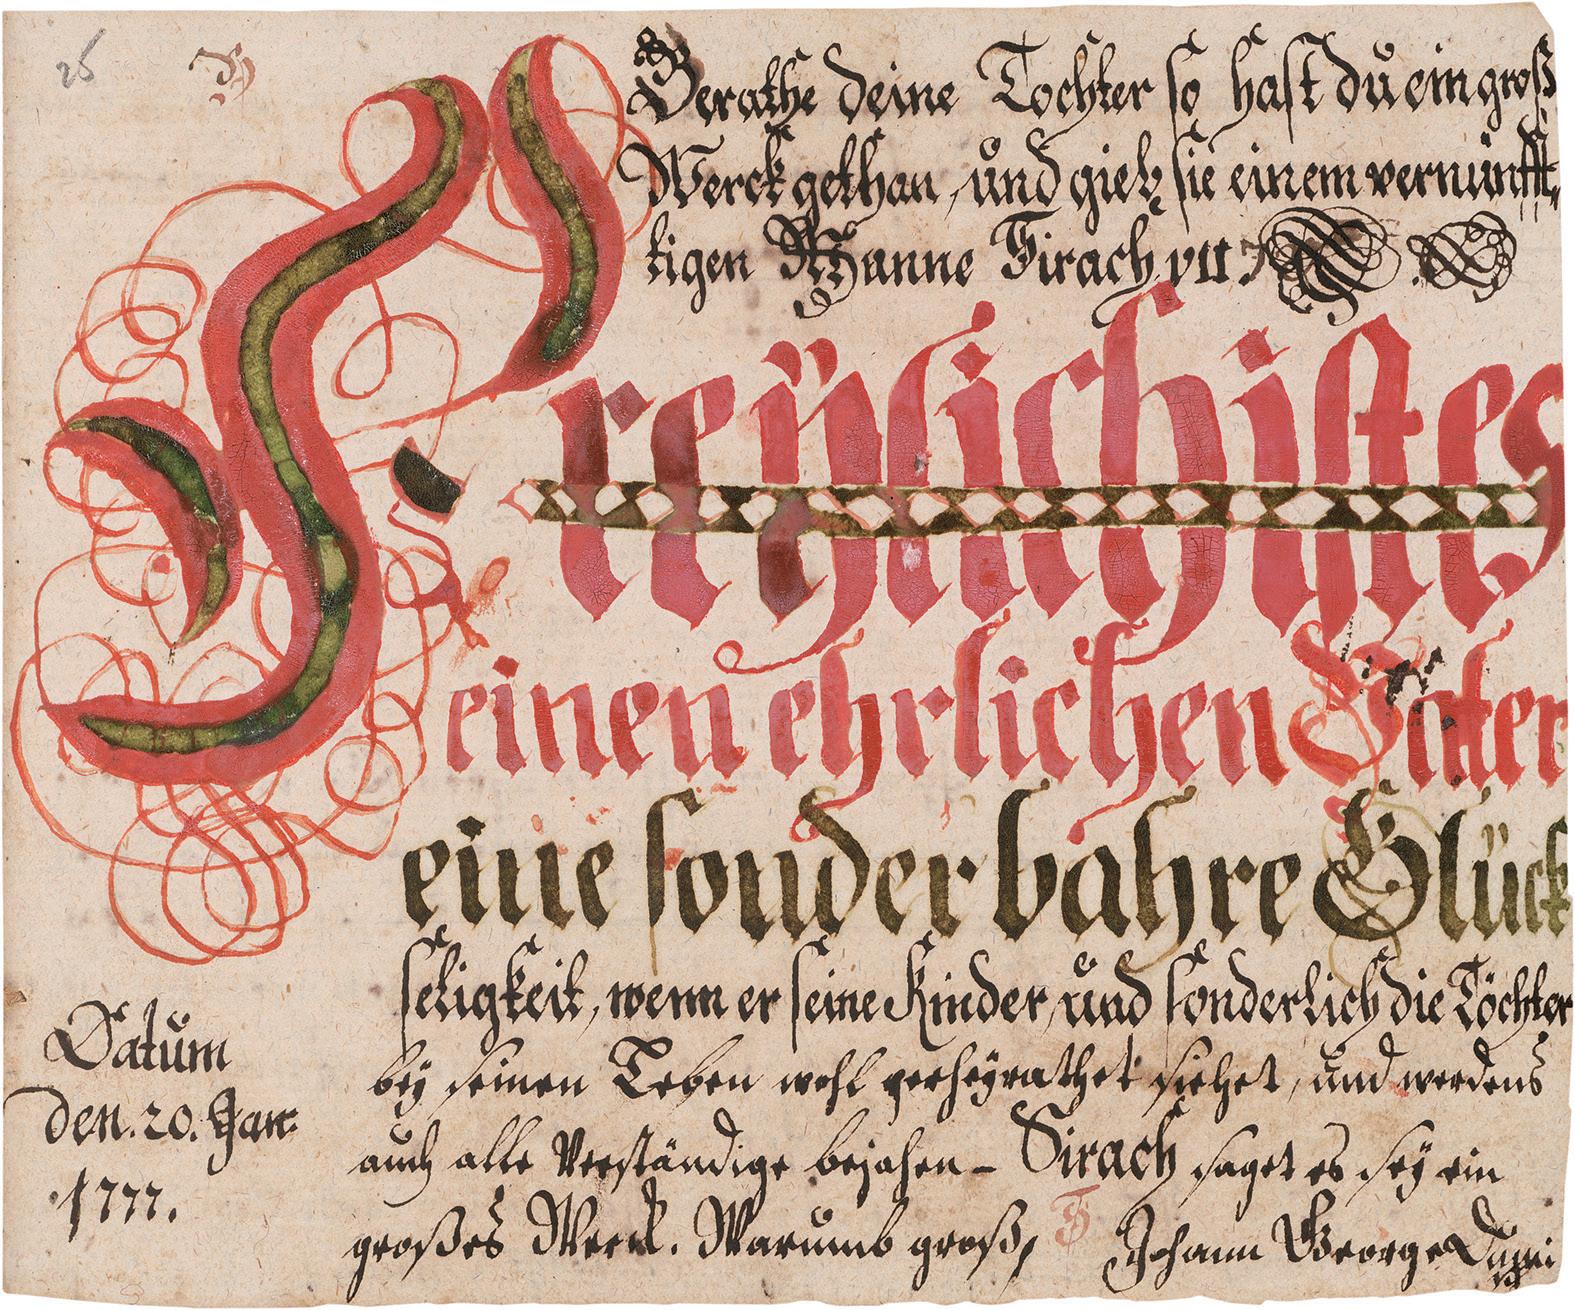 26
Berathe deine Tochter so hast du ein groß
Werck gethan, und gieb sie einem vernünfft,
tigen Manne Sirach VII
Freÿlich ist es
einen ehrlichen Vater
eine sonderbahre Glück
seligkeit, wenn er seine Kinder, und sonderlich die Töchter
beÿ seinen Leben wohl verheÿrathet siehet, und werdens
auch alle Verständige bejahen – Sirach saget es seÿ ein
großes Werck. Warumb groß,
Johann George
Datum
den. 20. Jan:
1777.